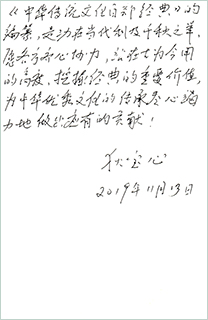 《中华传统文化百部经典》的
编纂，是功在当代利及千秋之举。
愿各方齐心协力，站在古为今用
的高度，挖掘经典的重要价值，
为中华优秀文化的传承尽心竭
力地做出应有的贡献！
2019年11月13日